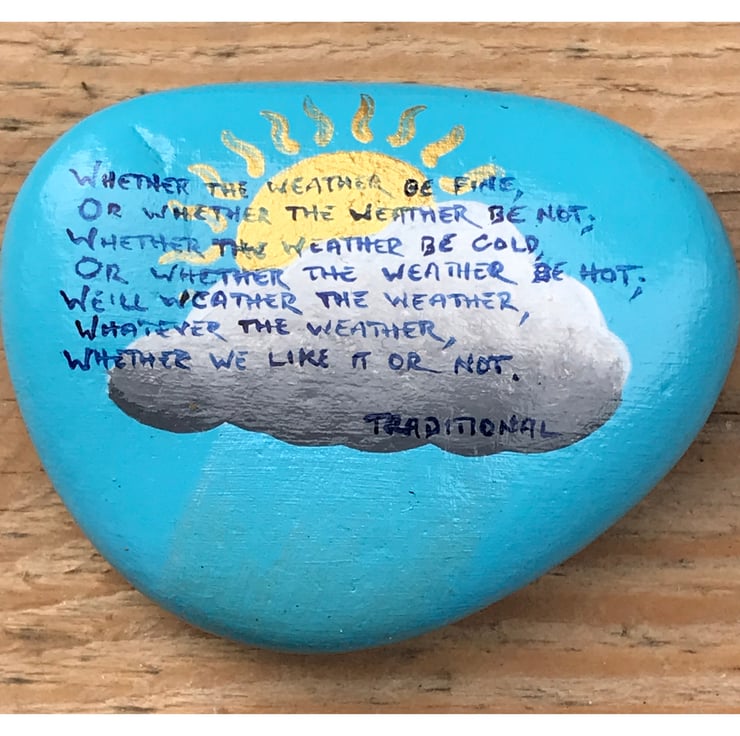 WHETHER THE WEATHER BE FINE,
OR WHETHER THE WEATHER BE NOT;
WHETHER THE WEATHER BE COLD,
OR WHETHER THE WEATHER BE HOT;
WE'LL WEATHER THE WEATHER,
WHATEVER THE WEATHER,
WHETHER WE LIKE IT OR NOT.
TRADITIONAL